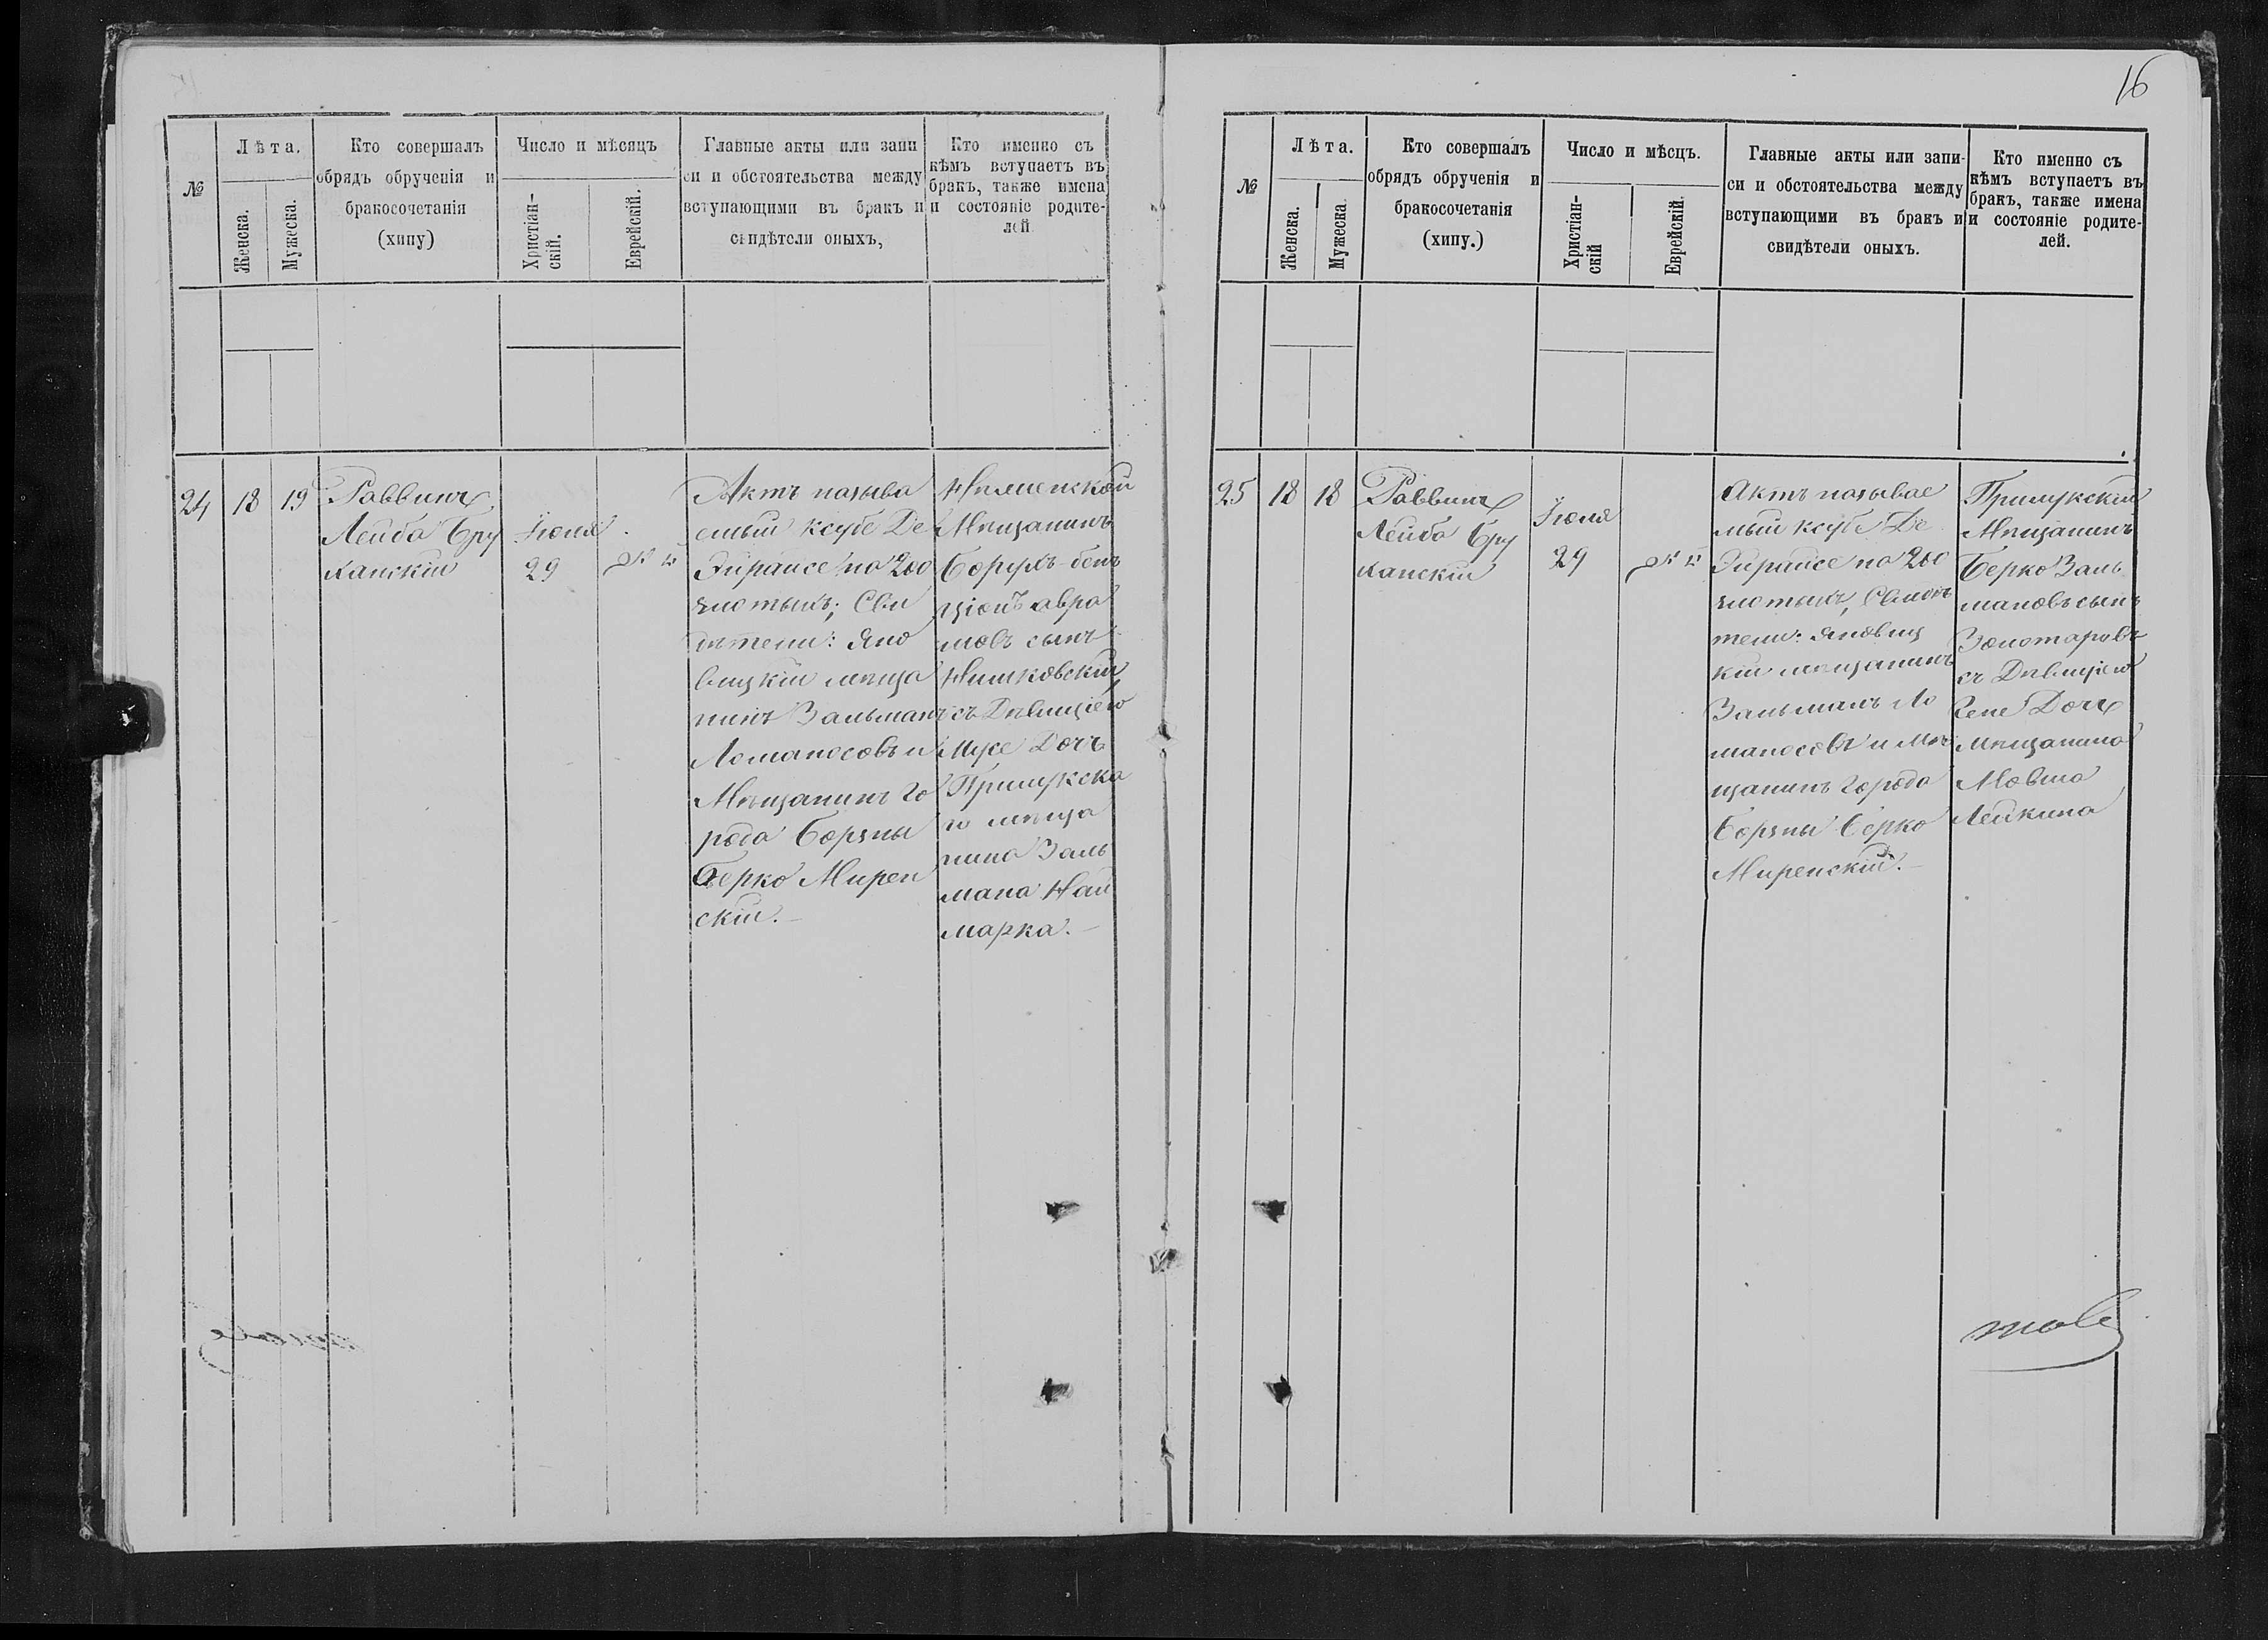 16
№
Лѣта.
Женска.
Мужеска.
Кто совершалъ
обрядъ обрученія и
бракосочетанія
(хипу)
Число и мѣсяцъ
Христіан-
скій.
Еврейскій.
Главные акты или запи
си и обстоятельства между
вступающими въ бракъ и
свидѣтели оныхъ,
Кто именно съ
кѣмъ вступаетъ въ
бракъ, также имена
и состояніе родите-
лей
24
18
19
Раввинъ
Лейба Бру
ханскій
Іюня
29
Актъ называ
емый ксубе Де
Эйрайсе на 200
злотыхъ; Сви
дѣтели: Яно
вицкій мѣща
нинъ Зальманъ
Ломаносовъ и
Мѣщанинъ го
рода Борзны
Берко Мирен
скій.
Мѣщанинъ
Борухъ-бенъ
ціонъ Авра
мовъ сынъ
съ Дѣвицею
Мусе Дочь
Прилукска
го мѣща
нина Заль
мана Най
марка.
№
Лѣта.
Женска.
Мужеска.
Кто совершалъ
обрядъ обрученія и
бракосочетанія
(хипу.)
Число и мѣсцъ.
Христіан-
скій
Еврейскій.
Главные акты или запи-
си и обстоятельства между
вступающими въ бракъ и
свидѣтели оныхъ.
Кто именно съ
кѣмъ вступаетъ въ
бракъ, также имена
и состояніе родите-
лей.
25
18
18
Раввинъ
Лейба Бру
ханскій
Іюня
29
Актъ называе
мый ксубе Де
Эйрайсе на 200
злотыхъ, Свидѣ
тели: Яновиц
кій мѣщанинъ
Зальманъ Ло
маносовъ и Мѣ
щанинъ города
Борзны Берко
Миренскій.
Прилукскій
Мѣщанинъ
Берко Заль
мановъ сынъ
Золотаревъ
съ Дѣвицею
Дочь
Мѣщанина
Мовша
Лейкина